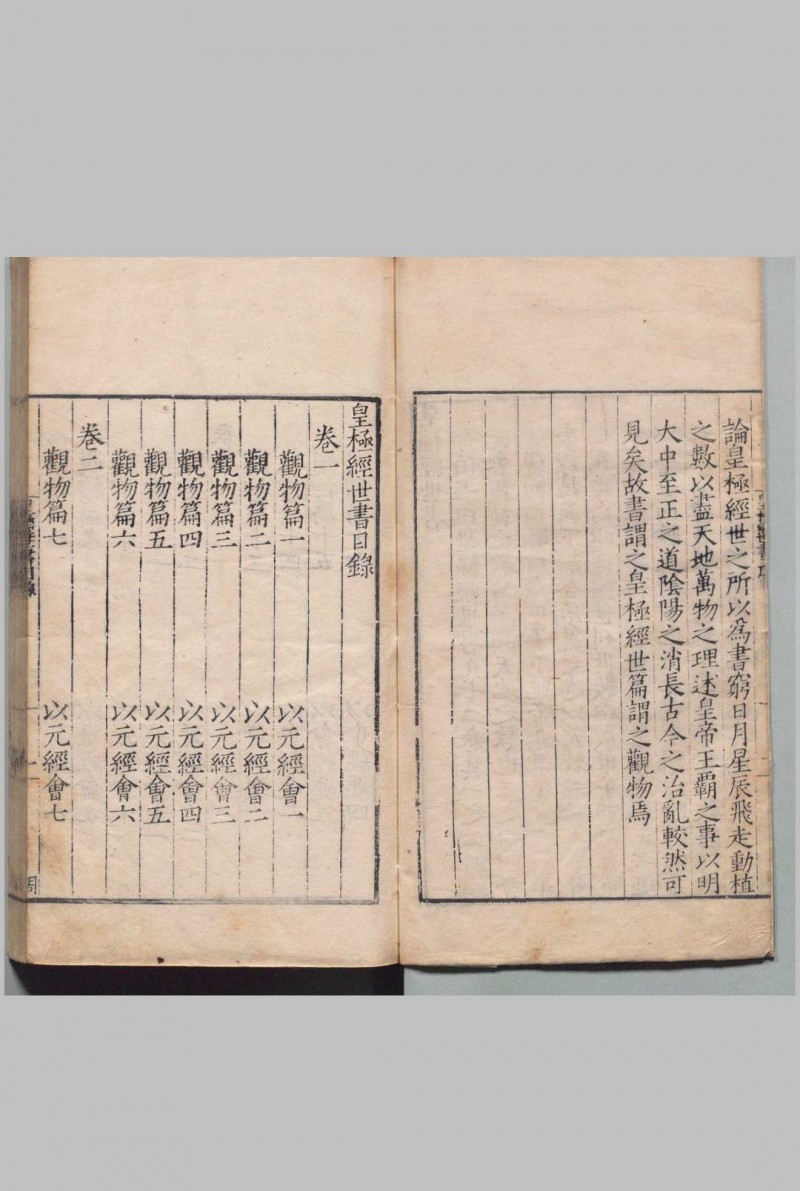 論皇極經世之所以為書窮日月星辰飛走動植
之數以盡天地萬物之理述皇帝王霸之事以明
大中至正之道陰陽之消長古今之治亂較然可
見矣故書謂之皇極經世篇謂之觀物焉
皇極經世書目錄
卷一
觀物篇一 以元經會一
觀物篇二 以元經會二
觀物篇三 以元經會三
觀物篇四 以元經會四
觀物篇五 以元經會五
觀物篇六 以元經會六
卷二
觀物篇七 以元經會七